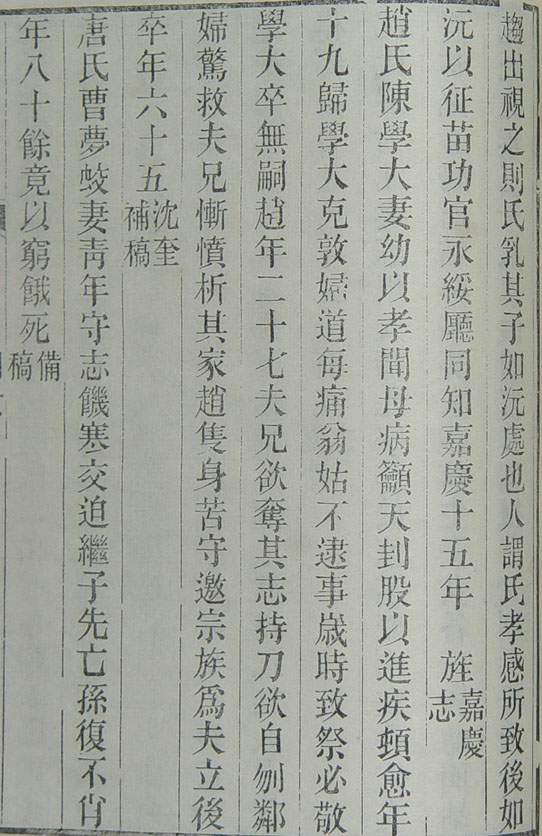 趨出視之則氏乳其子如沅處也人謂氏孝感所致後如
沅以征苗功官永綏廳同知嘉慶十五年　旌嘉慶志
趙氏陳學大妻幼以孝聞母病籲天刲股以進疾頓愈年
十九歸學大克敦婦道每痛翁姑不逮事歲時致祭必敬
學大卒無嗣趙年二十七夫兄欲奪其志持刀欲自刎鄰
婦驚救夫兄慚憤析其家趙隻身苦守邀宗族爲夫立後
卒年六十五沈奎補稿
唐氏曹夢蛟妻靑年守志饑寒交迫繼子先亡孫復不肖
年八十餘竟以窮餓死備稿